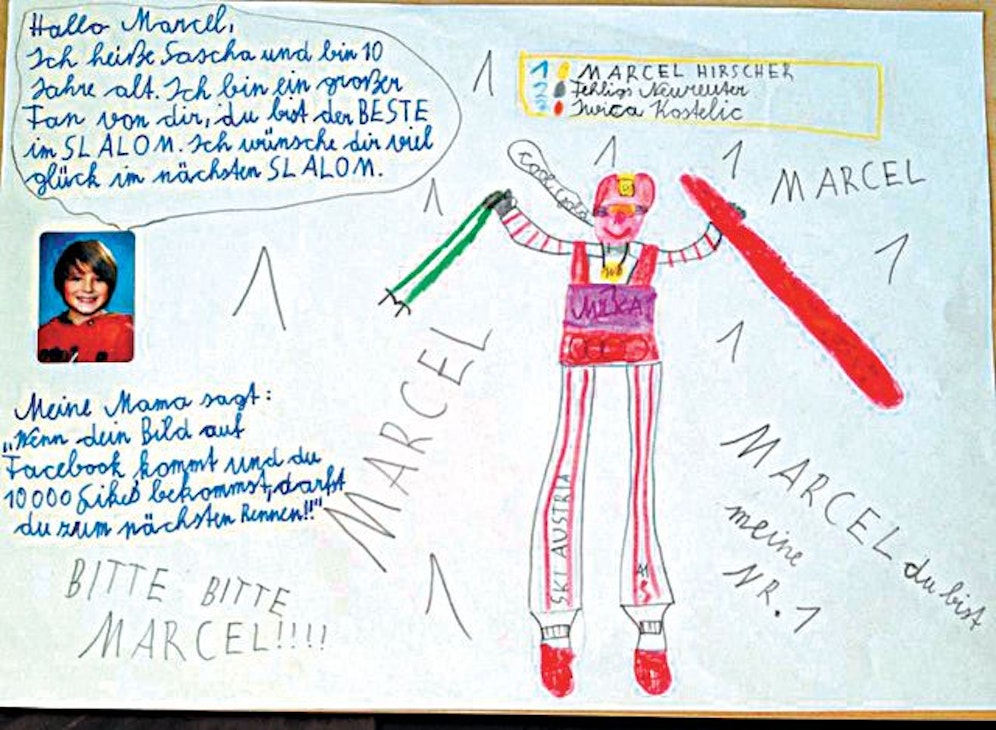 Hallo Marcel,
Ich heiße Sascha und bin 10
Jahre alt. Ich bin ein großer
Fan von dir, du bist der BESTE
im SLALOM. Ich wünsche dir viel
glück im nächsten SLALOM.
1
1 MARCEL HIRSCHER
2 Fehligs Neureuter
3 Ivica Kostelic
1
1
MARCEL
1
1
1
1
MARCEL
Meine Mama sagt:
„Wenn dein Bild auf
Facebook kommt und du
10000 Likes bekommst, darfst
du zum nächsten Rennen!!"
BITTE BITTE
MARCEL!!!!
1
SKI AUSTRIA
MARCEL du bist
meine
NR. 1